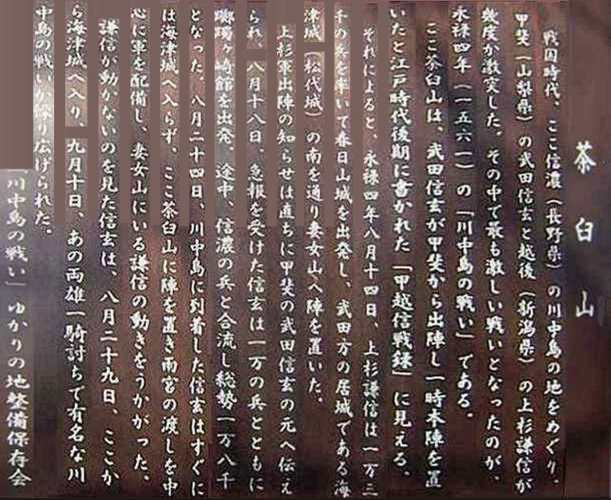 茶臼山
戦国時代、ここ信濃（長野県）の川中島の地をめぐり、
甲斐（山梨県）の武田信玄と越後（新潟県）の上杉謙信が
幾度か激突した。その中で最も激しい戦いとなったのが、
永禄四年（一五六一）の「川中島の戦い」である。
ここ茶臼山は、武田信玄が甲斐から出陣し一時本陣を置
いたと江戸時代後期に書かれた「甲越信戦録」に見える。
それによると、永禄四年八月十四日、上杉謙信は一万三
千の兵を率いて春日山城を出発し、武田方の居城である海
津城（松代城）の南を通り妻女山へ陣を置いた。
上杉軍出陣の知らせは直ちに甲斐の武田信玄の元へ伝え
られ、八月十八日、急報を受けた信玄は一万の兵とともに
躑躅ヶ崎館を出発、途中、信濃の兵と合流し総勢一万八千
となった。八月二十四日、川中島に到着した信玄はすぐに
は海津城へ入らず、ここ茶臼山に陣を置き雨宮の渡しを中
心に軍を配備し、妻女山にいる謙信の動きをうかがった。
謙信が動かないのを見た信玄は、八月二十九日、ここか
ら海津城へ入り、九月十日、あの両雄一騎討ちで有名な川
中島の戦いが繰り広げられた。
「川中島の戦い」ゆかりの地整備保存会